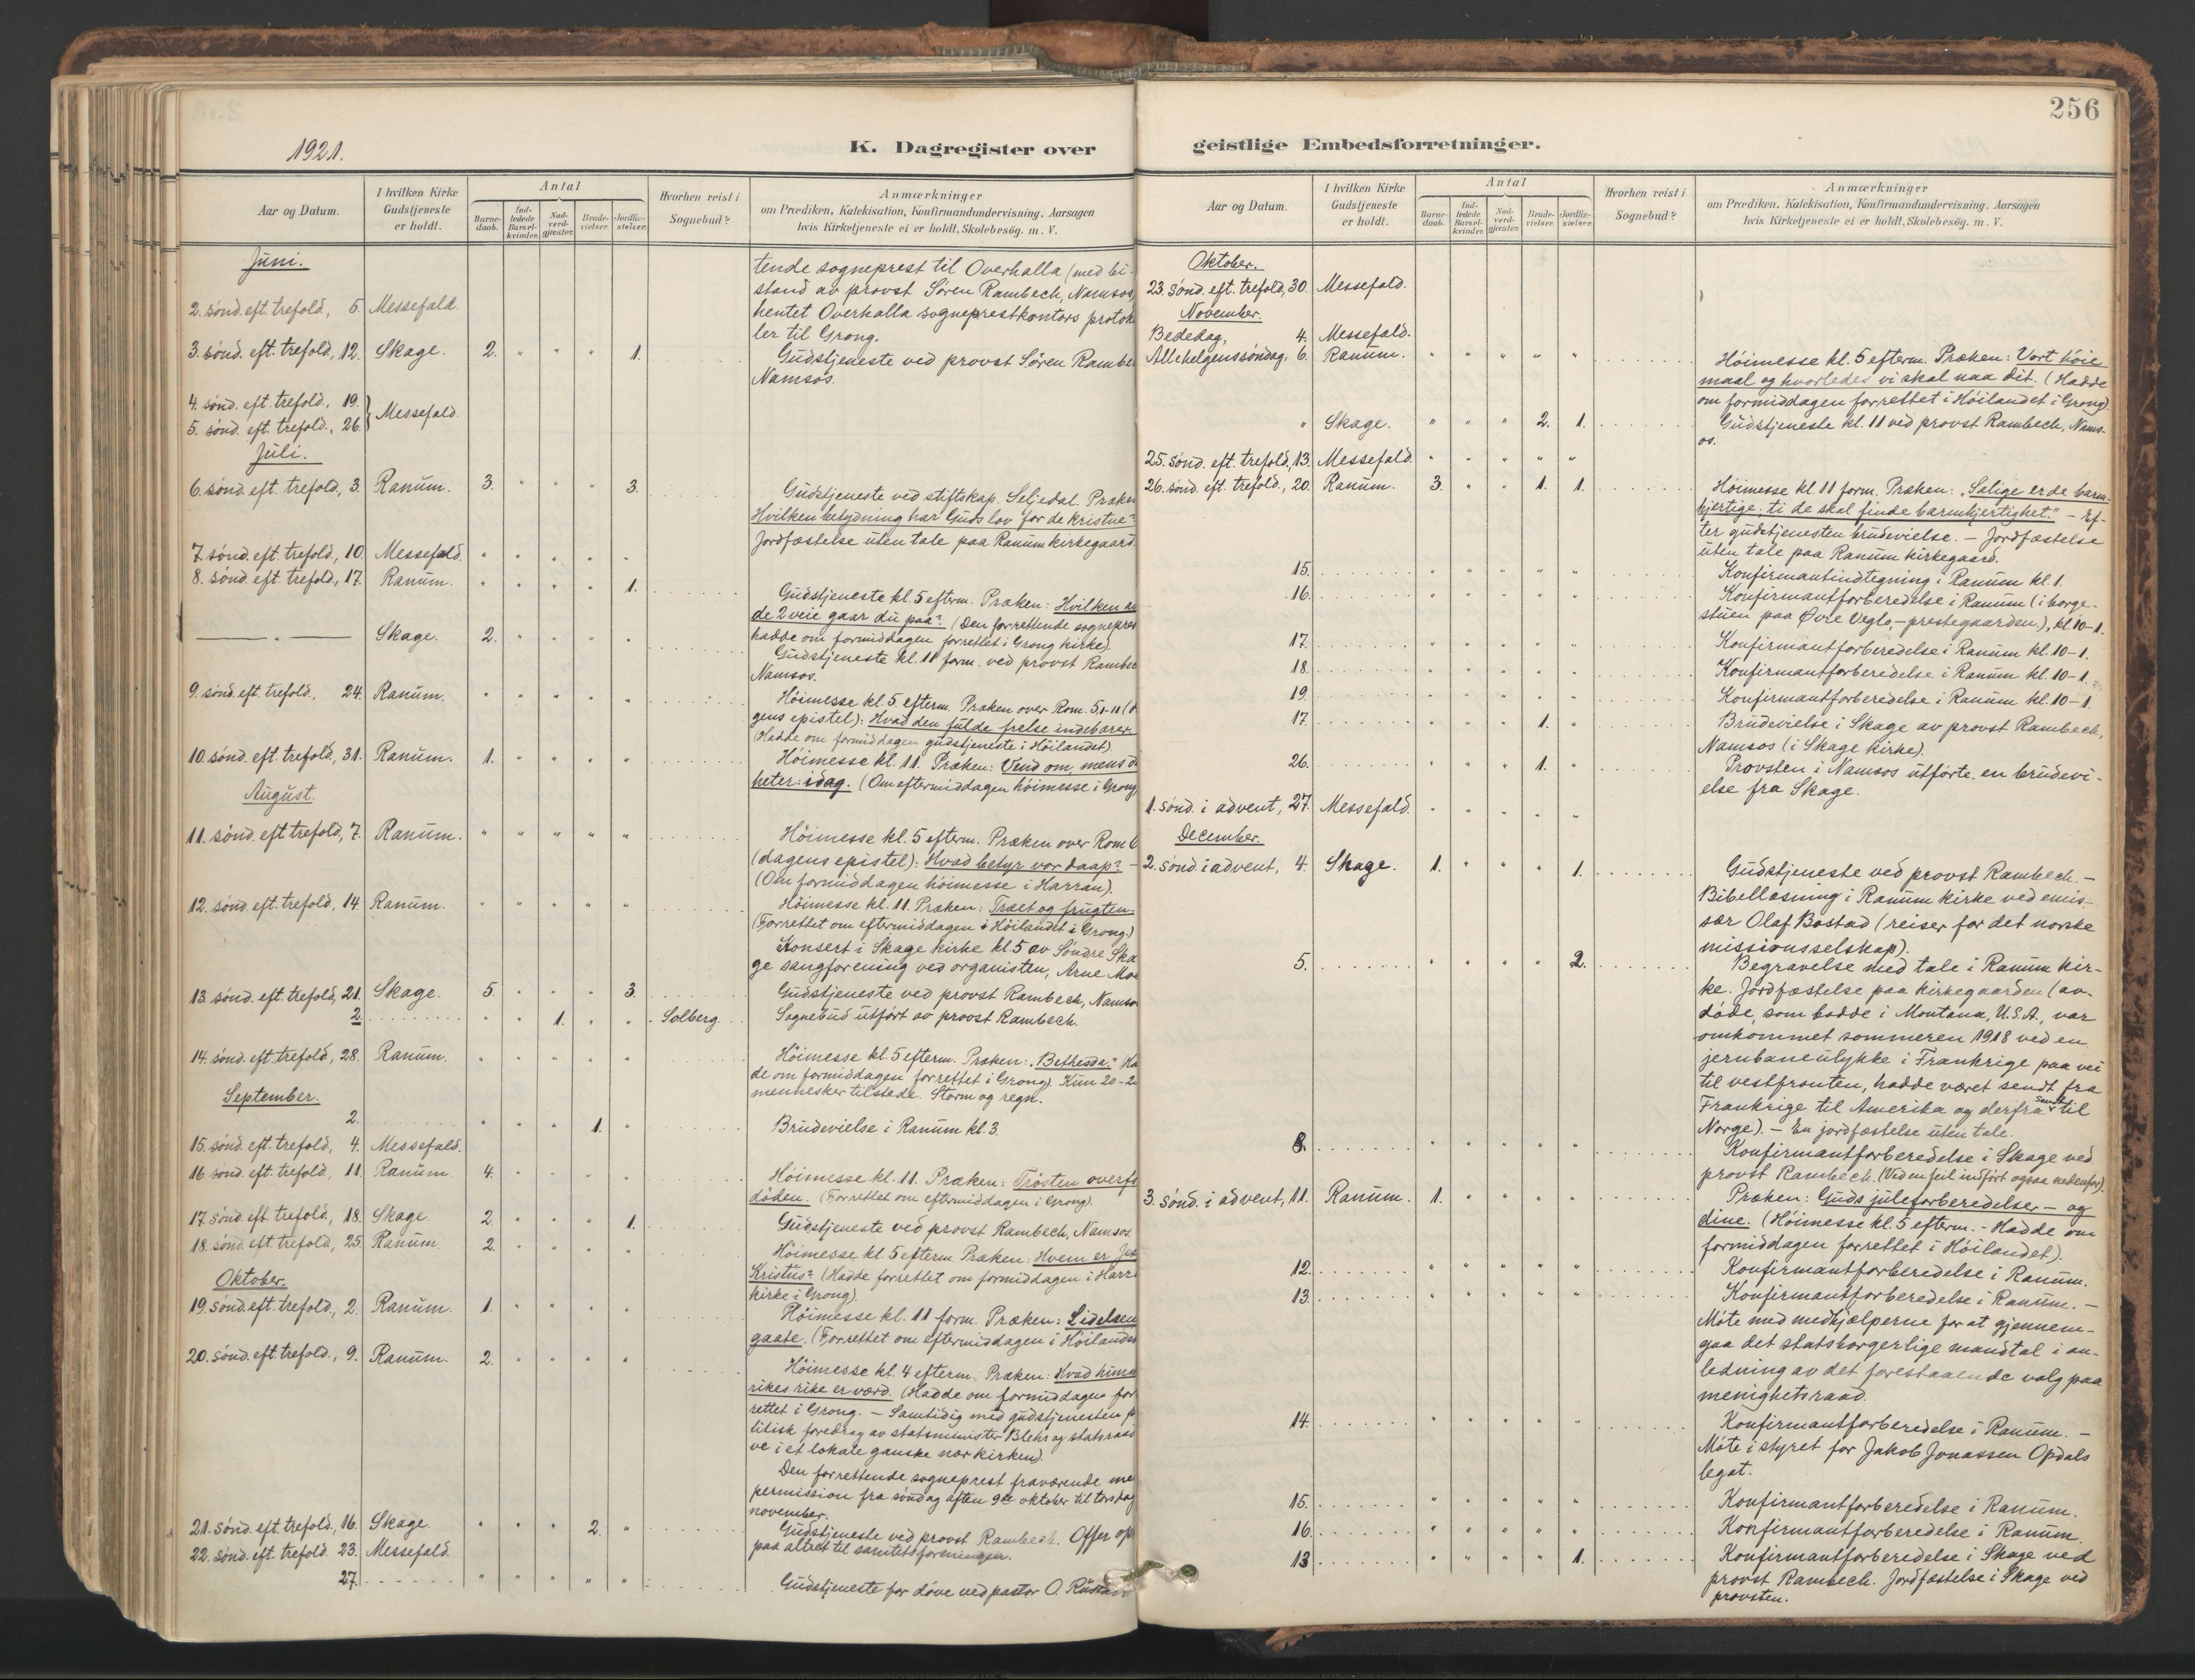 256
1921.
K. Dagregister over
geistlige Embedsforretninger.
Aar og Datum.
I hvilken Kirke Gudstjeneste er holdt.
Antal
Barne-daab.
Ind-ledede Barsel-kvinder.
Nad-verd-gjæster.
Brude-vielser.
Jordfæ-stelser.
Hvorhen reist i Sognebud?
Anmærkninger
om Prædiken, Katekisation, Konfirmandundervisning. Aarsagen
hvis Kirketjeneste ei er holdt, Skolebesög. m. V.
Juni.
tende sogneprest til Overhalla (med bi-
stand av provst Søren Rambech, Namsos,
2. sønd. eft. trefold, 5. Messefald.
hentet Overhalla sogneprestkontors protok
ler til Grong.
3. sønd. eft. trefold, 12. Skage. 2. " " " 1.
Gudstjeneste ved provst Søren Rambe
Namsos.
4. sønd. eft. trefold, 19.
5. sønd. eft. trefold, 26. } Messefald.
Juli.
6. sønd. eft. trefold, 3. Ranum. 3. " " " 3.
Gudstjeneste ved stiftskap. Seljedal. Præken
Hvilken betydning har Guds lov for de kristne?
Jordfæstelse uten tale paa Ranum kirkegaard.
7. sønd. eft. trefold, 10. Messefald. " " " " "
8. sønd. eft. trefold, 17. Ranum. " " " " 1.
Gudstjeneste kl. 5 efterm. Præken: Hvilken av
de 2 veie gaar du paa? (Den forrettende sognepres
hadde om formiddagen forrettet i Grong kirke).
— " — Skage. 2. " " " "
Gudstjeneste kl. 11 form. ved provst Rambec
Namsos.
9. sønd. eft. trefold, 24. Ranum. " " " " "
Høimesse kl. 5 efterm. Præken over Rom. 5,1-11 (
gens epistel): Hvad den fulde frelse indebærer.
(Hadde om formiddagen gudstjeneste i Høilandet).
10. sønd. eft. trefold, 31. Ranum. 1. " " " "
Høimesse kl. 11. Præken: Vend om, mens d
heter: idag. (Om eftermiddagen høimesse i Grong
August.
11. sønd. eft. trefold, 7. Ranum. " " " " "
Høimesse kl. 5 efterm. Præken over Rom 6
(dagens epistel): Hvad betyr vor daap? —
(Om formiddagen høimesse i Harran).
12. sønd. eft. trefold, 14. Ranum. " " " " "
Høimesse kl. 11. Præken: Træet og frugten.
(Forrettet om eftermiddagen i Høilandet i Grong.)
Konsert i Skage kirke kl. 5 av Søndre Ska
ge sangforening ved organisten, Arne Moe
13. sønd. eft. trefold, 21. Skage. 5. " " " 3.
Gudstjeneste ved provst Rambech, Namso
2. " " 1. " " Solberg. Sognebud utført av provst Rambech.
14. sønd. eft. trefold, 28. Ranum. " " " " "
Høimesse kl. 5 efterm. Præken: "Bethesda." Ha
de om formiddagen forrettet i Grong). Kun 20-2
mennesker tilstede. Storm og regn.
September.
2. " " " 1. " Brudevielse i Ranum kl. 3.
15. sønd. eft. trefold, 4. Messefald.
16. sønd. eft. trefold, 11. Ranum. 4. " " " "
Høimesse kl. 11. Præken: Trøsten overfo
døden. (Forrettet om eftermiddagen i Grong).
17. sønd. eft. trefold, 18. Skage. 2. " " " 1.
Gudstjeneste ved provst Rambech, Namsos.
18. sønd. eft. trefold, 25. Ranum. 2. " " " "
Høimesse kl. 5 efterm. Præken: Hvem er Jes
Kristus? (Hadde forrettet om formiddagen i Harr
kirke i Grong).
Oktober.
19. sønd. eft. trefold, 2. Ranum. 1. " " " "
Høimesse kl. 11 form. Præken: Lidelsen
gaate. (Forrettet om eftermiddagen i Høilandet
20. sønd. eft. trefold, 9. Ranum. 2. " " " "
Høimesse kl. 4 efterm. Præken: Hvad himm
rikes rike er værd. (Hadde om formiddagen for
rettet i Grong. — Samtidig med gudstjenesten p
litisk foredrag av statsminister Blehr og statsraad
ve i et lokale ganske nær kirken).
Den forrettende sogneprest fraværende me
permission fra søndag aften 9de oktober til torsdag
november.
21. sønd. eft. trefold, 16. Skage. " " " 2. "
Gudstjeneste ved provst Rambech. Offer op
paa altret til sanitetsforeningen.
22. sønd. eft. trefold. 23. Messefald.
27. " " " " "
Gudstjeneste for døve ved pastor O.
Aar og Datum.
I hvilken Kirke Gudstjeneste er holdt.
Antal
Barne-daab.
Ind-ledede Barsel-kvinder.
Nad-verd-gjæster.
Brude-vielser.
Jordfæ-stelser.
Hvorhen reist i Sognebud?
Anmærkninger
om Prædiken, Katekisation, Konfirmandundervisning. Aarsagen
hvis Kirketjeneste ei er holdt, Skolebesög. m. V.
Oktober.
23. sønd. eft. trefold, 30. Messefald.
November.
Bededag, 4. Messefald.
Allehelgenssøndag, 6. Ranum. " " " " "
Høimesse kl. 5 efterm. Præken: Vort høie
maal og hvorledes vi skal naa dit. (Hadde
om formiddagen forrettet i Høilandet i Grong).
" Skage. " " " 2. 1.
Gudstjeneste kl. 11 ved provst Rambech, Nams-
os.
25. sønd. eft. trefold, 13. Messefald. " " " " "
26. sønd. eft. trefold, 20. Ranum. 3. " " 1. 1.
Høimesse kl. 11 form. Præken: "Salige er de barm-
hjertige; ti de skal finde barmhjertighet." — Ef-
ter gudstjenesten brudevielse. — Jordfæstelse
uten tale paa Ranum kirkegaard.
15. " " " " " Konfirmantindtegning i Ranum kl. 1.
16. " " " " " Konfirmantforberedelse i Ranum (i borge-
stuen paa Øvre Vegla, — prestegaarden), kl. 10-1.
17. " " " " " Konfirmantforberedelse i Ranum kl. 10-1.
18. " " " " " Konfirmantforberedelse i Ranum kl. 10-1.
19. " " " " " Konfirmantforberedelse i Ranum kl. 10-1.
17. " " " 1. " Brudevielse i Skage av provst Rambech,
Namsos (i Skage kirke).
26. " " " 1. " Provsten i Namsos utførte en brudevi-
else fra Skage.
1. sønd. i advent, 27. Messefald. " " " " "
December.
2. sønd. i advent, 4. Skage. 1. " " " 1.
Gudstjeneste ved provst Rambech. —
Bibellæsning i Ranum kirke ved emis-
sær Olaf Bostad (reiser for det norske
missionsselskap).
5. " " " " 2. Begravelse med tale i Ranum kir-
ke. Jordfæstelse paa kirkegaarden (av-
døde, som bodde i Montana, U.S.A., var
omkommet sommeren 1918 ved en
jernbaneulykke i Frankrige paa vei
til vestfronten, hadde været sendt fra
Frankrige til Amerika og derfra sendt til
Norge). — En jordfæstelse uten tale.
8. " " " " " Konfirmantforberedelse i Skage ved
provst Rambech. (Ved en feil indført ogsaa nedenfor).
3. sønd. i advent, 11. Ranum. 1. " " " "
Præken: Guds juleforberedelser — og
dine. (Høimesse kl. 5 efterm. — Hadde om
formiddagen forrettet i Høilandet).
12. " " " " " Konfirmantforberedelse i Ranum.
13. " " " " " Konfirmantforberedelse i Ranum. —
Møte med medhjælperne for at gjennem-
gaa det statsborgerlige mandtal i an-
ledning av det forestaaende valg paa
menighetsraad.
14. " " " " " Konfirmantforberedelse i Ranum. —
Møte i styret for Jakob Jonassen Opdals
legat.
15. " " " " " Konfirmantforberedelse i Ranum.
16. " " " " " Konfirmantforberedelse i Ranum.
13 " " " " 1. Konfirmantforberedelse i Skage ved
provst Rambech. Jordfæstelse i Skage ved
provsten.